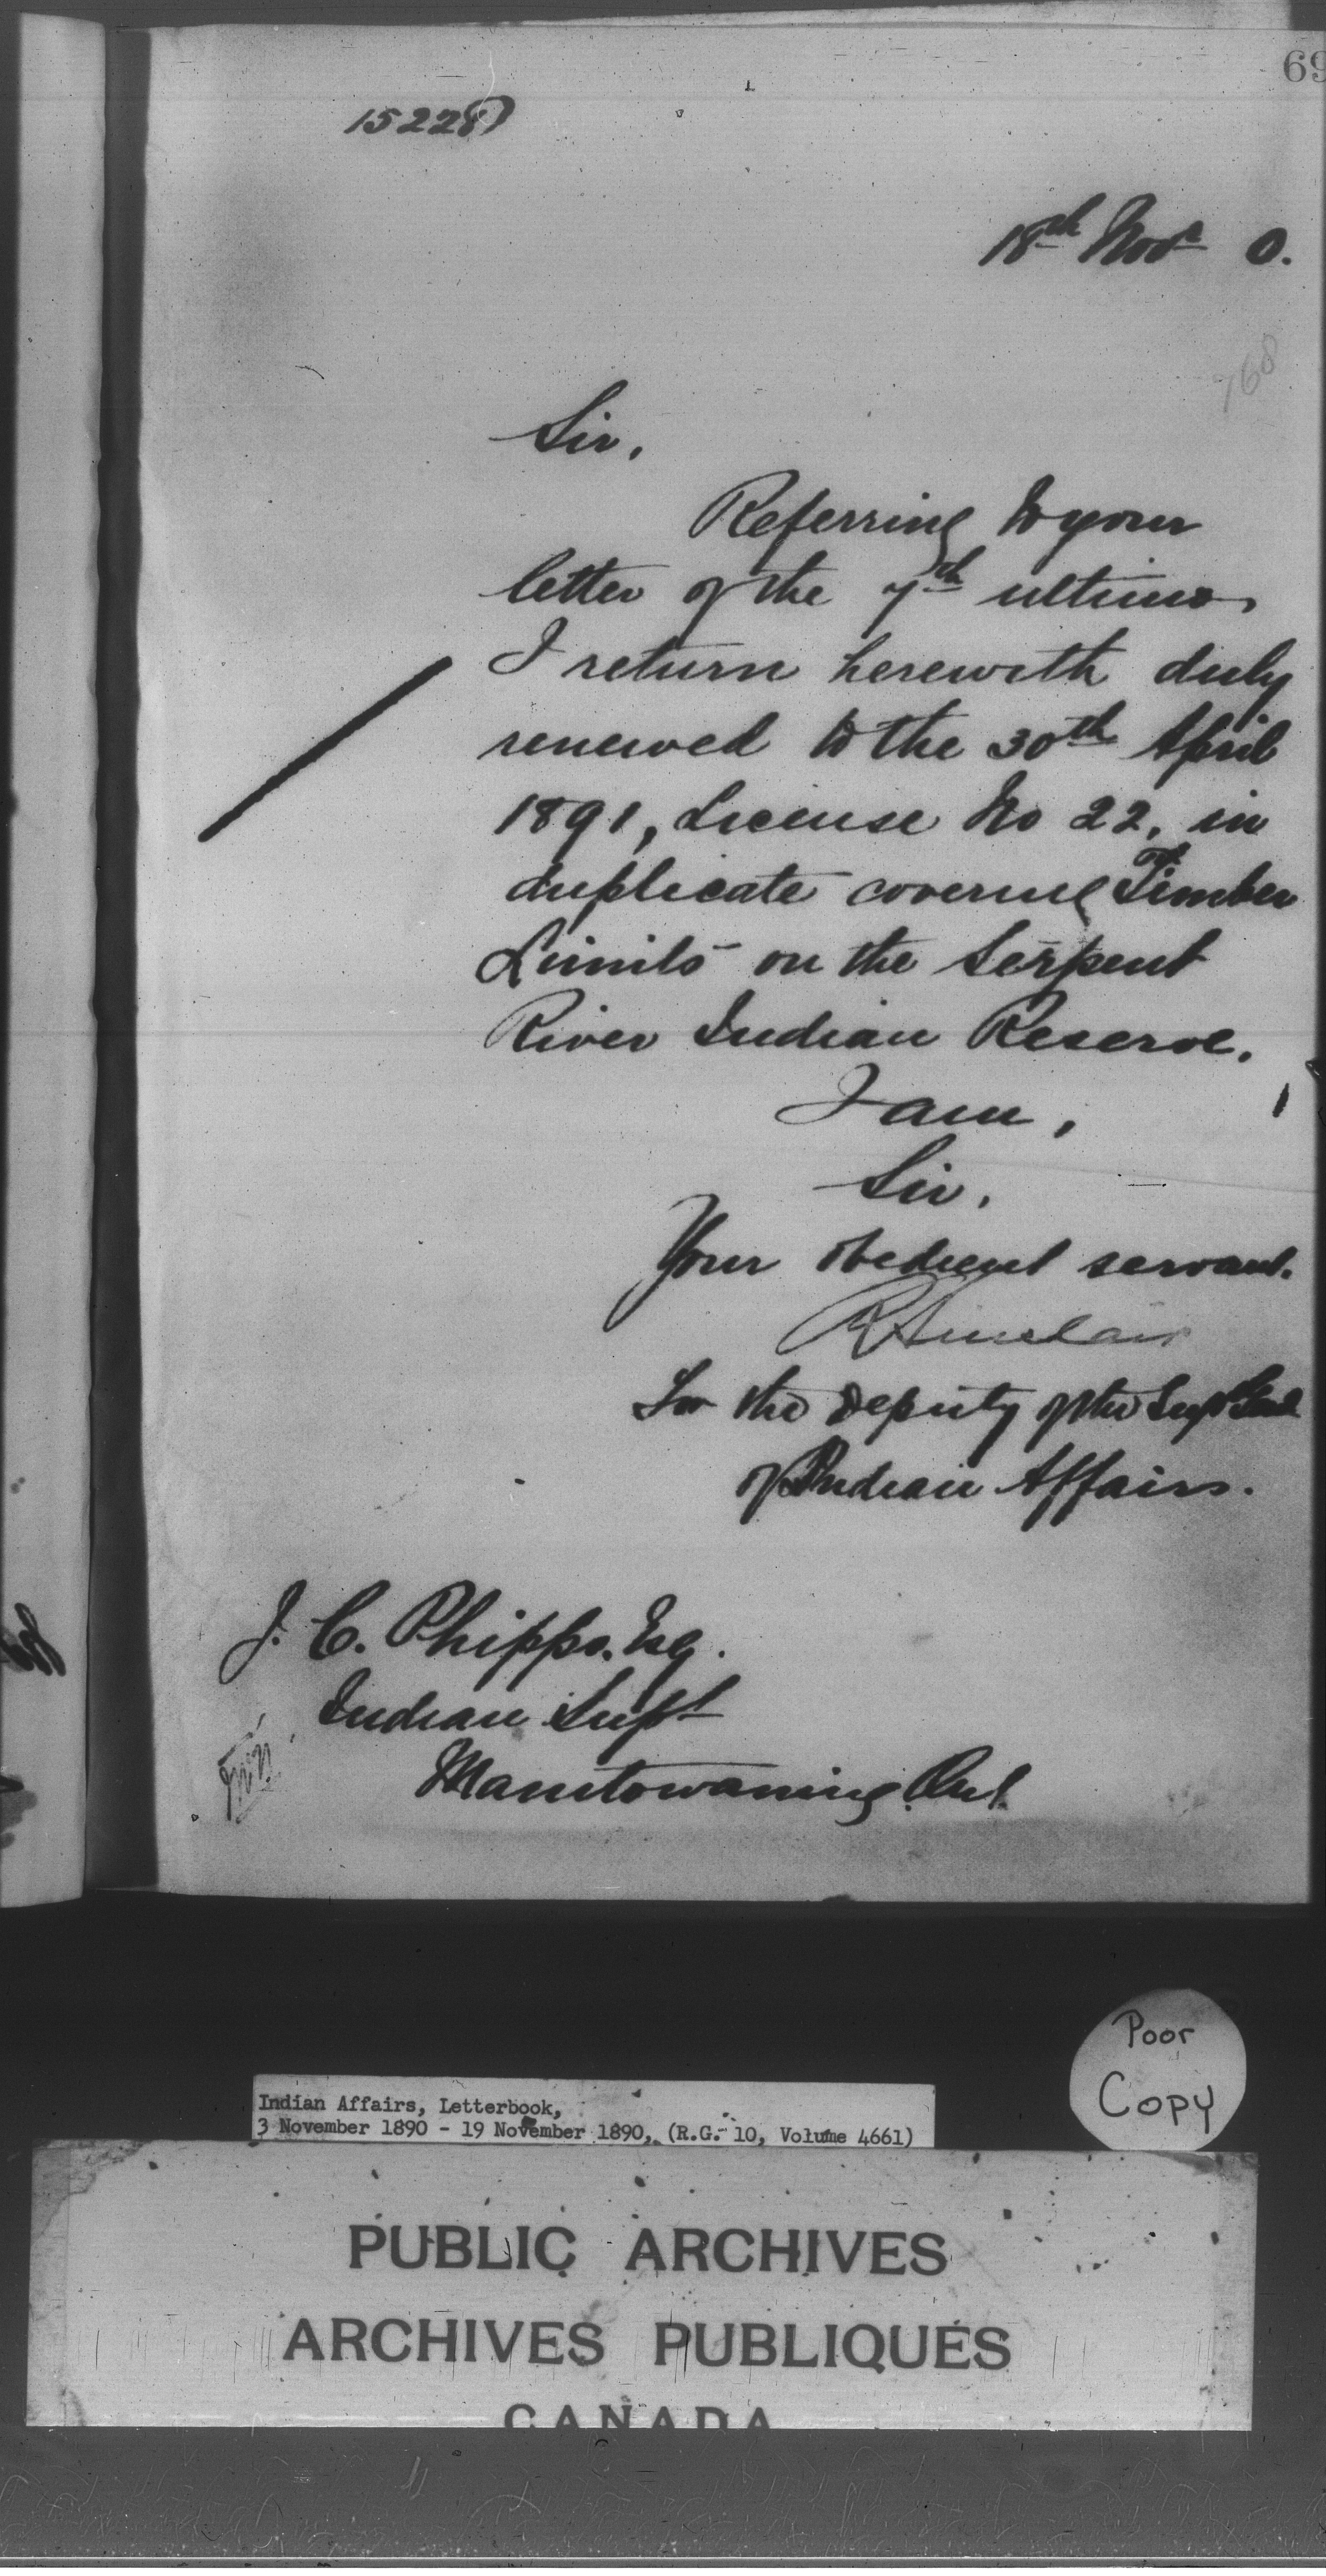 69
15228
18th Novr 0.
768
Sir,
Referring to your
letter of the 7th ultimo
I return herewith duly
renewed to the 30th April
1891, License No 22, in
duplicate covering Timber
Limits on the Serpent
River Indian Reserve.
I am,
Sir,
Your obedient servant.
R Sinclair
For the Deputy of the Supt Genl
of Indian Affairs.
J. C. Phipps. Esq.
Indian Supt
Manitowaning. Ont.
Poor
Copy
Indian Affairs, Letterbook,
3 November 1890 - 19 November 1890, (R.G. 10, Volume 4661)
PUBLIC ARCHIVES
ARCHIVES PUBLIQUES
CANADA